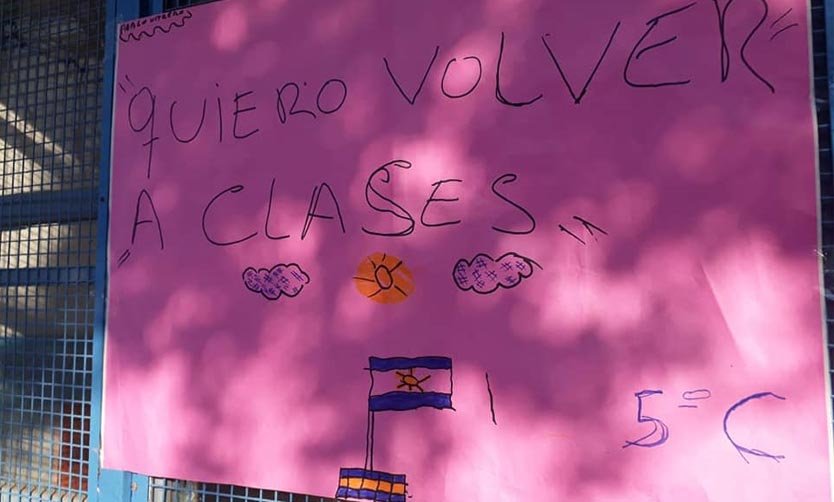 "QUIERO VOLVER"
"A CLASES"
5º C